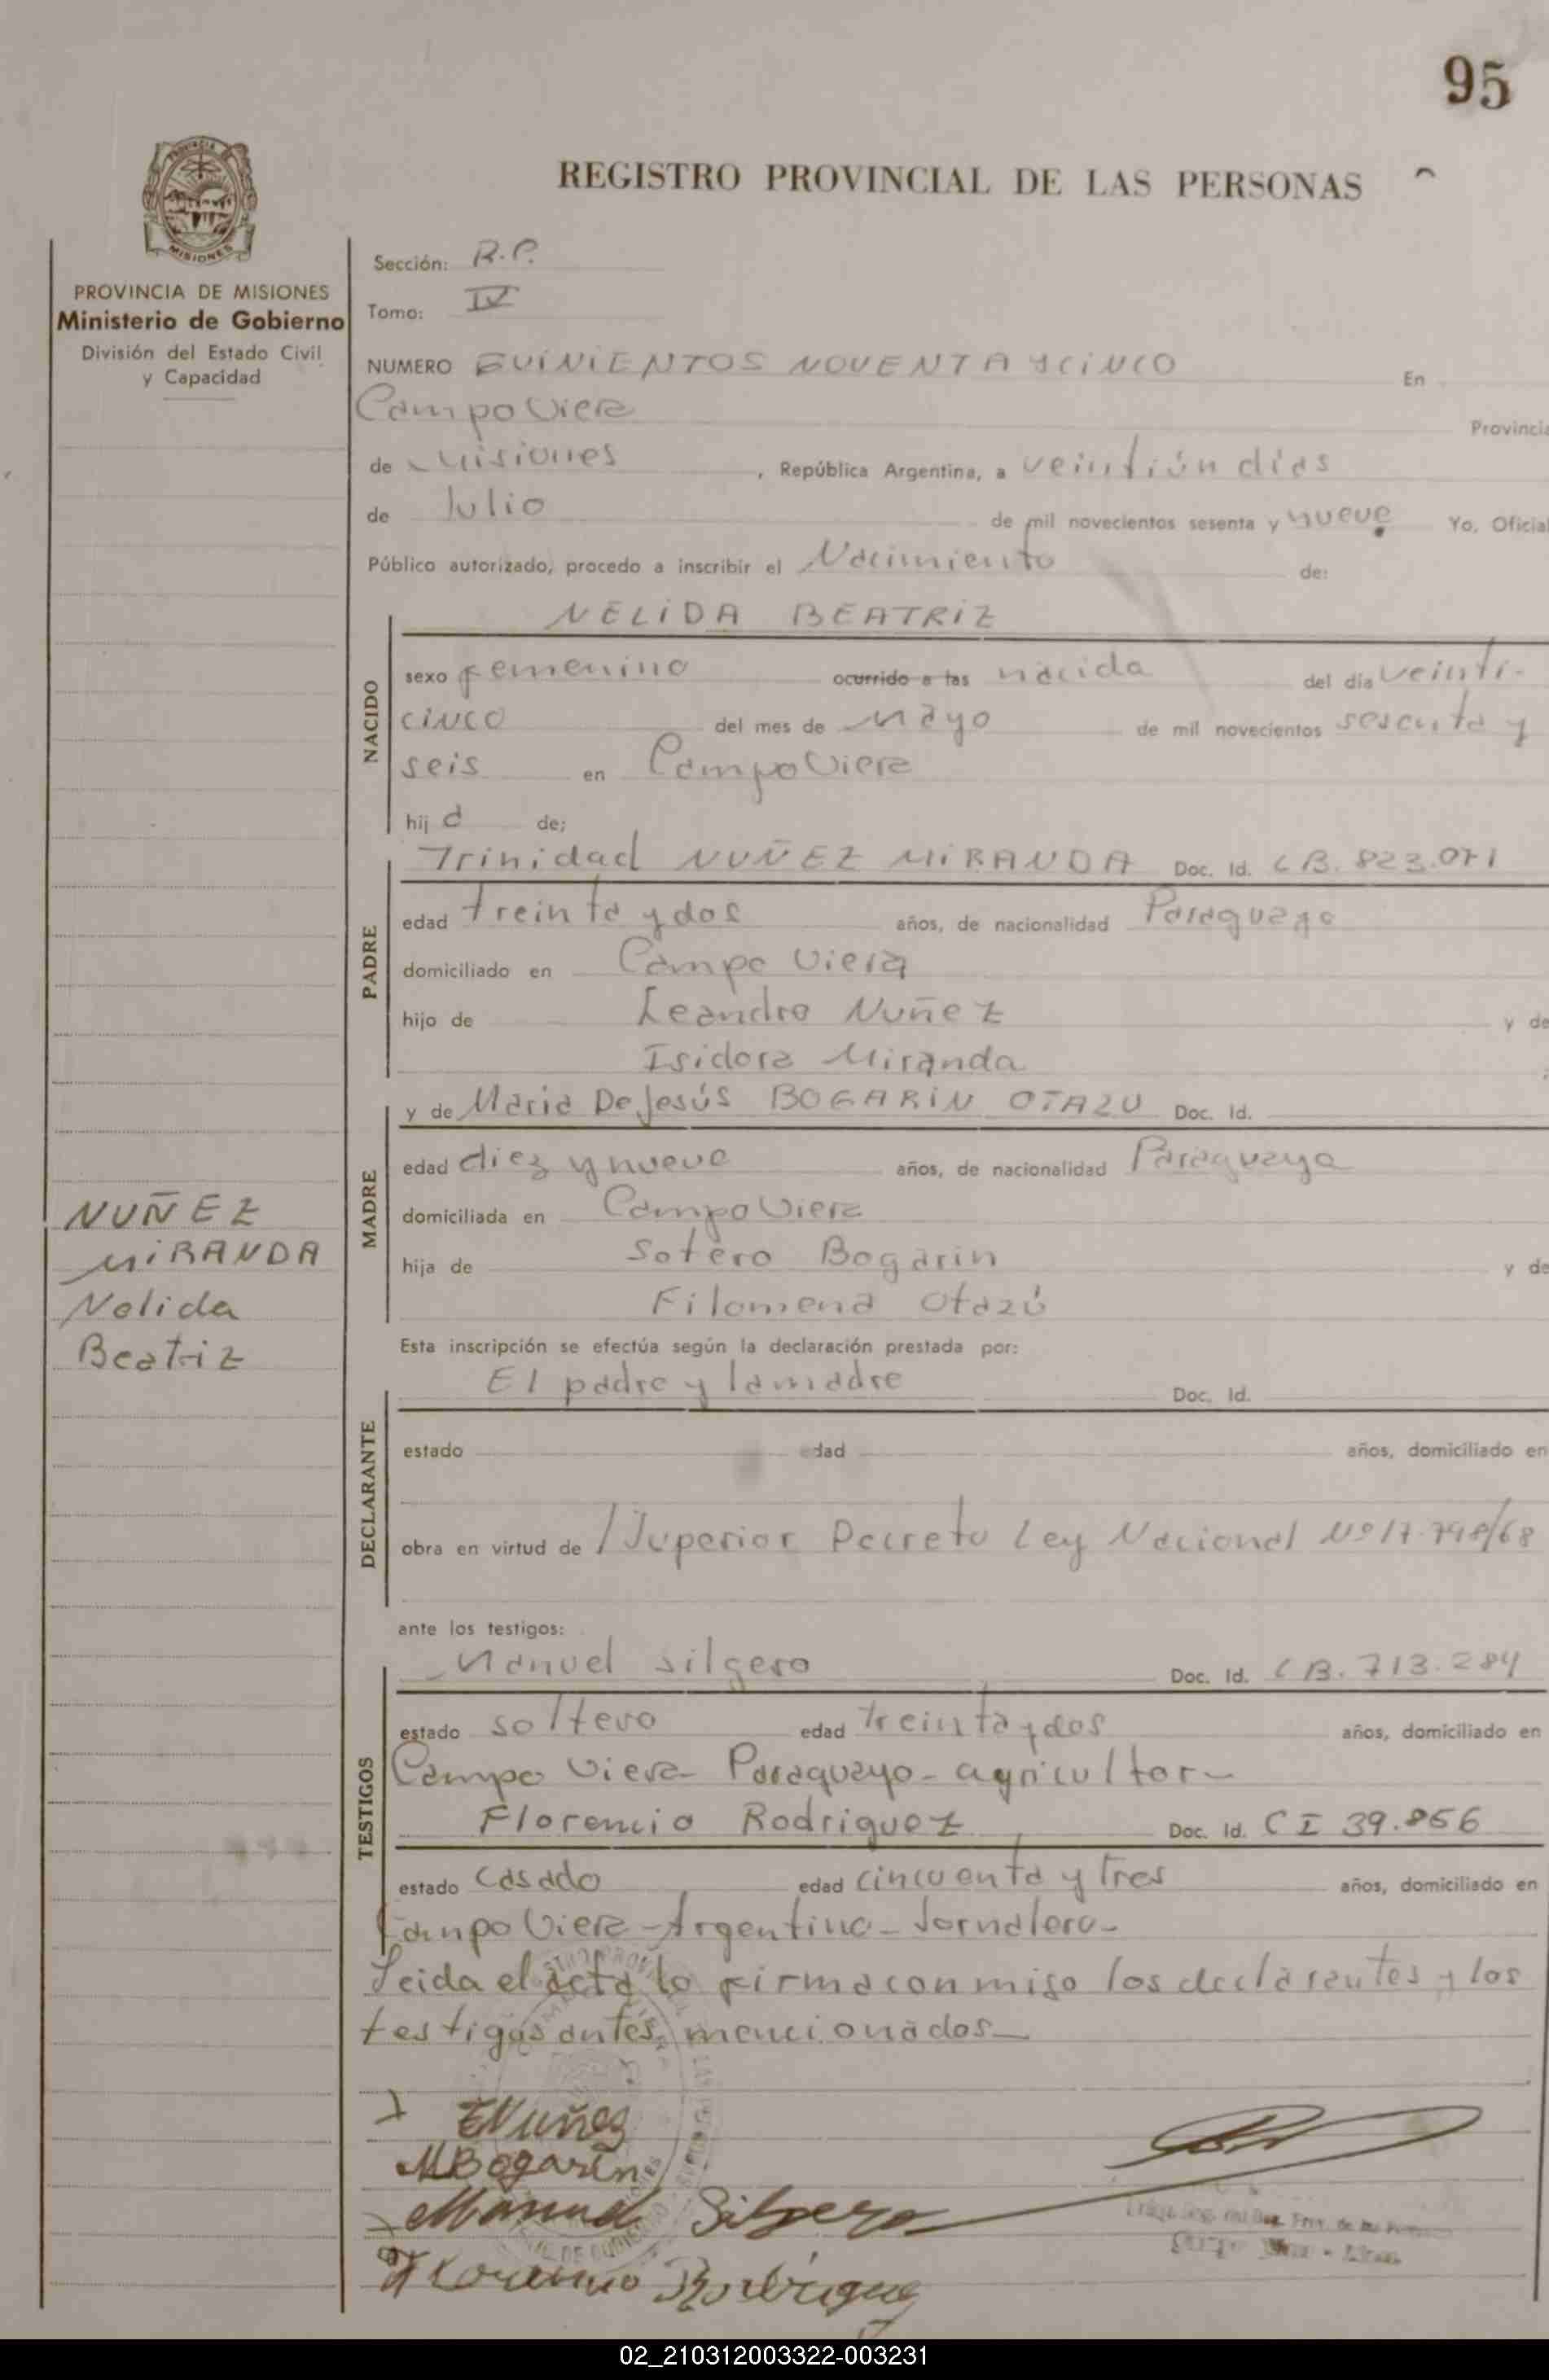 95
REGISTRO PROVINCIAL DE LAS PERSONAS
PROVINCIA
MISIONES
PROVINCIA DE MISIONES
Ministerio de Gobierno
División del Estado Civil
y Capacidad
Sección: R.P.
Tomo: IV
NUMERO QUINIENTOS NOVENTA Y CINCO En
Campo Viera Provincia
de Misiones, República Argentina, a veintiún días
de Julio de mil novecientos sesenta y nueve Yo, Oficial
Público autorizado, procedo a inscribir el Nacimiento de:
NACIDO
NELIDA BEATRIZ
sexo femenino ocurrido a las nacida del día veinti-
cinco del mes de Mayo de mil novecientos sesenta y
seis en Campo Viera
hij a de;
PADRE
Trinidad NUÑEZ MIRANDA Doc. Id. C B. 823.071
edad treinta y dos años, de nacionalidad Paraguaya
domiciliado en Campo Viera
hijo de Leandro Nuñez y de
Isidora Miranda
MADRE
y de Maria De Jesús BOGARIN OTAZU Doc. Id.
edad diez y nueve años, de nacionalidad Paraguaya
domiciliada en Campo Viera
hija de Sotero Bogarin y de
Filomena Otazú
NUÑEZ
MIRANDA
Nelida
Beatriz
Esta inscripción se efectúa según la declaración prestada por:
DECLARANTE
El padre y la madre Doc. Id.
estado edad años, domiciliado en
obra en virtud de / Superior Decreto Ley Nacional Nº 17.798/68
ante los testigos:
TESTIGOS
Manuel Silgero Doc. Id. C B. 713.284
estado soltero edad treinta y dos años, domiciliado en
Campo Viera- Paraguayo- agricultor-
Florencio Rodriguez Doc. Id. C I 39.856
estado casado edad cincuenta y tres años, domiciliado en
Campo Viera-Argentino-Jornalero-
Leida el acta lo firma conmigo los declarantes y los
testigos antes mencionados-
TNuñez
MBogarin
Manuel Silgero
Florencio Rodriguez
02_210312003322-003231